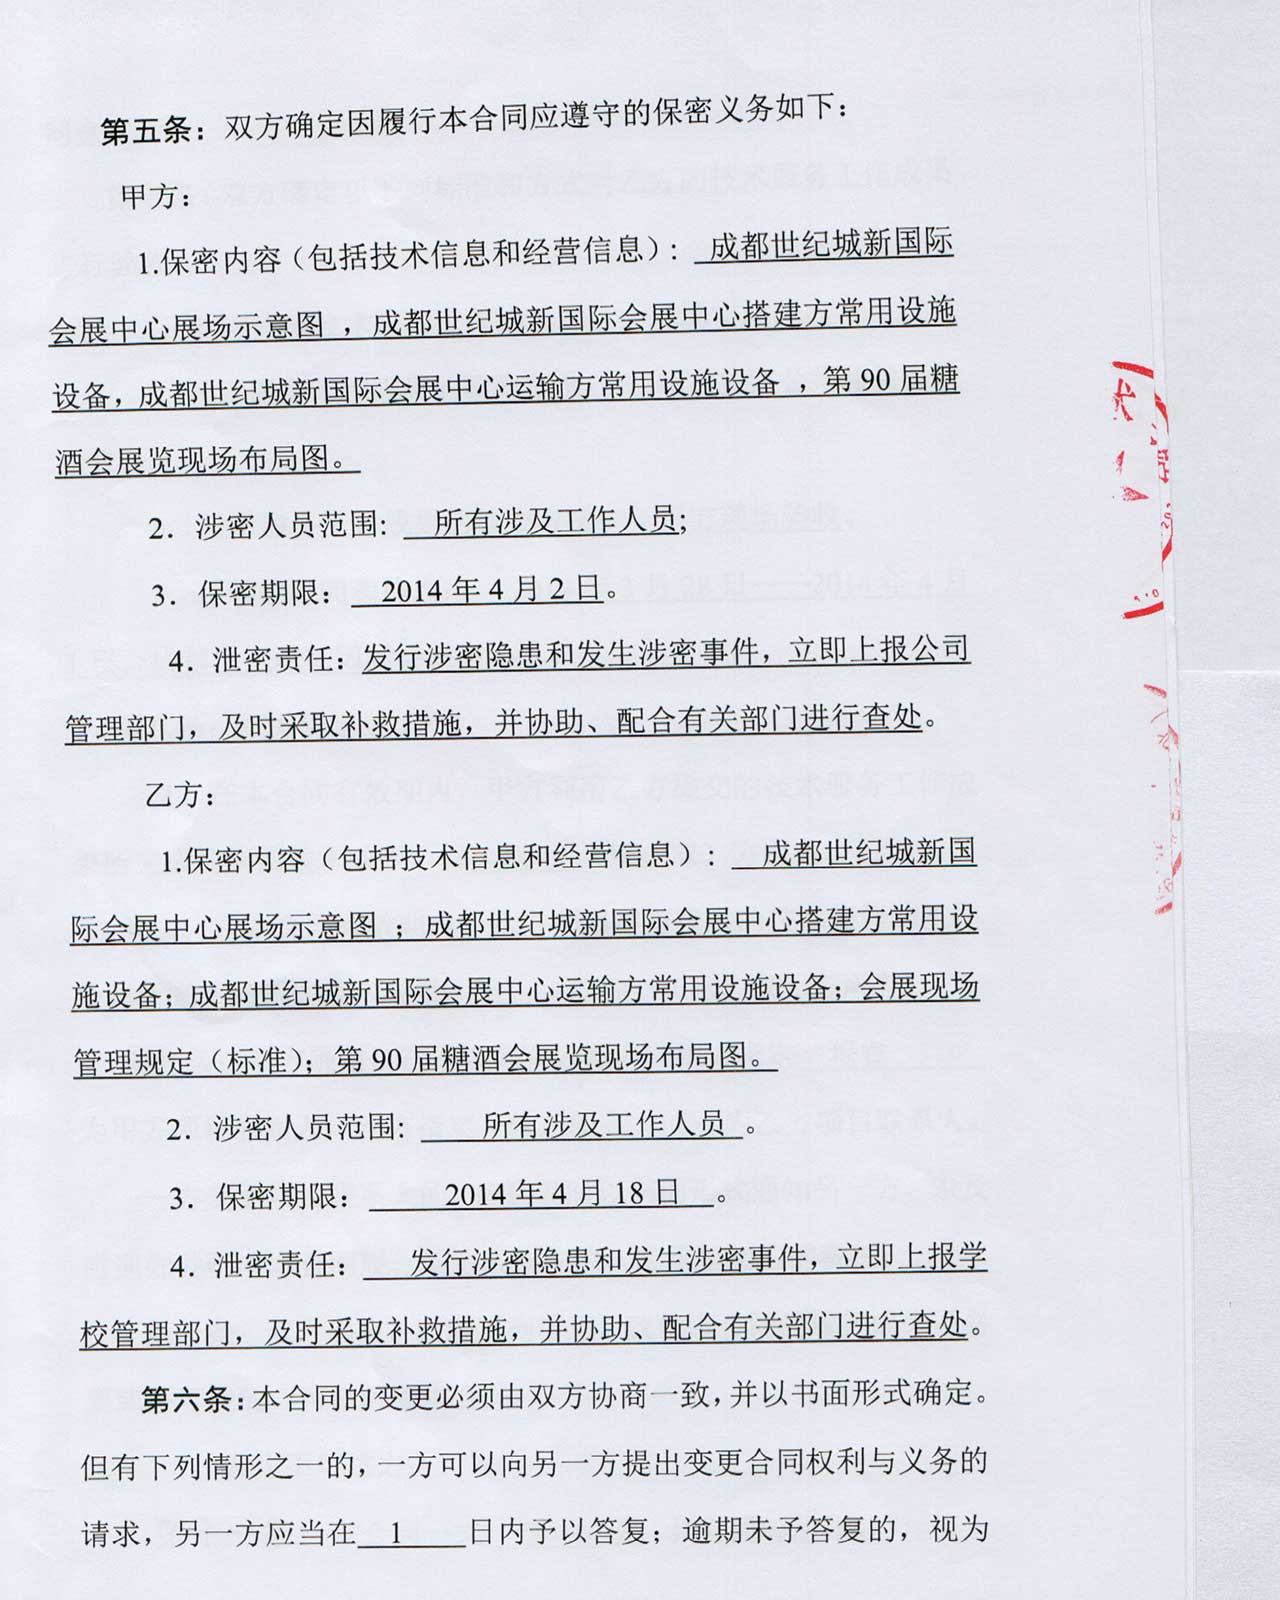 第五条：双方确定因履行本合同应遵守的保密义务如下：
甲方：
1.保密内容（包括技术信息和经营信息）： 成都世纪城新国际
会展中心展场示意图 ，成都世纪城新国际会展中心搭建方常用设施
设备，成都世纪城新国际会展中心运输方常用设施设备 ，第 90 届糖
酒会展览现场布局图。
2．涉密人员范围: 所有涉及工作人员;
3．保密期限： 2014 年 4 月 2 日。
4．泄密责任：发行涉密隐患和发生涉密事件，立即上报公司
管理部门，及时采取补救措施，并协助、配合有关部门进行查处。
乙方：
1.保密内容（包括技术信息和经营信息）： 成都世纪城新国
际会展中心展场示意图 ；成都世纪城新国际会展中心搭建方常用设
施设备；成都世纪城新国际会展中心运输方常用设施设备；会展现场
管理规定（标准）；第 90 届糖酒会展览现场布局图。
2．涉密人员范围: 所有涉及工作人员 。
3．保密期限： 2014 年 4 月 18 日 。
4．泄密责任： 发行涉密隐患和发生涉密事件，立即上报学
校管理部门，及时采取补救措施，并协助、配合有关部门进行查处。
第六条：本合同的变更必须由双方协商一致，并以书面形式确定。
但有下列情形之一的，一方可以向另一方提出变更合同权利与义务的
请求，另一方应当在 1 日内予以答复；逾期未予答复的，视为